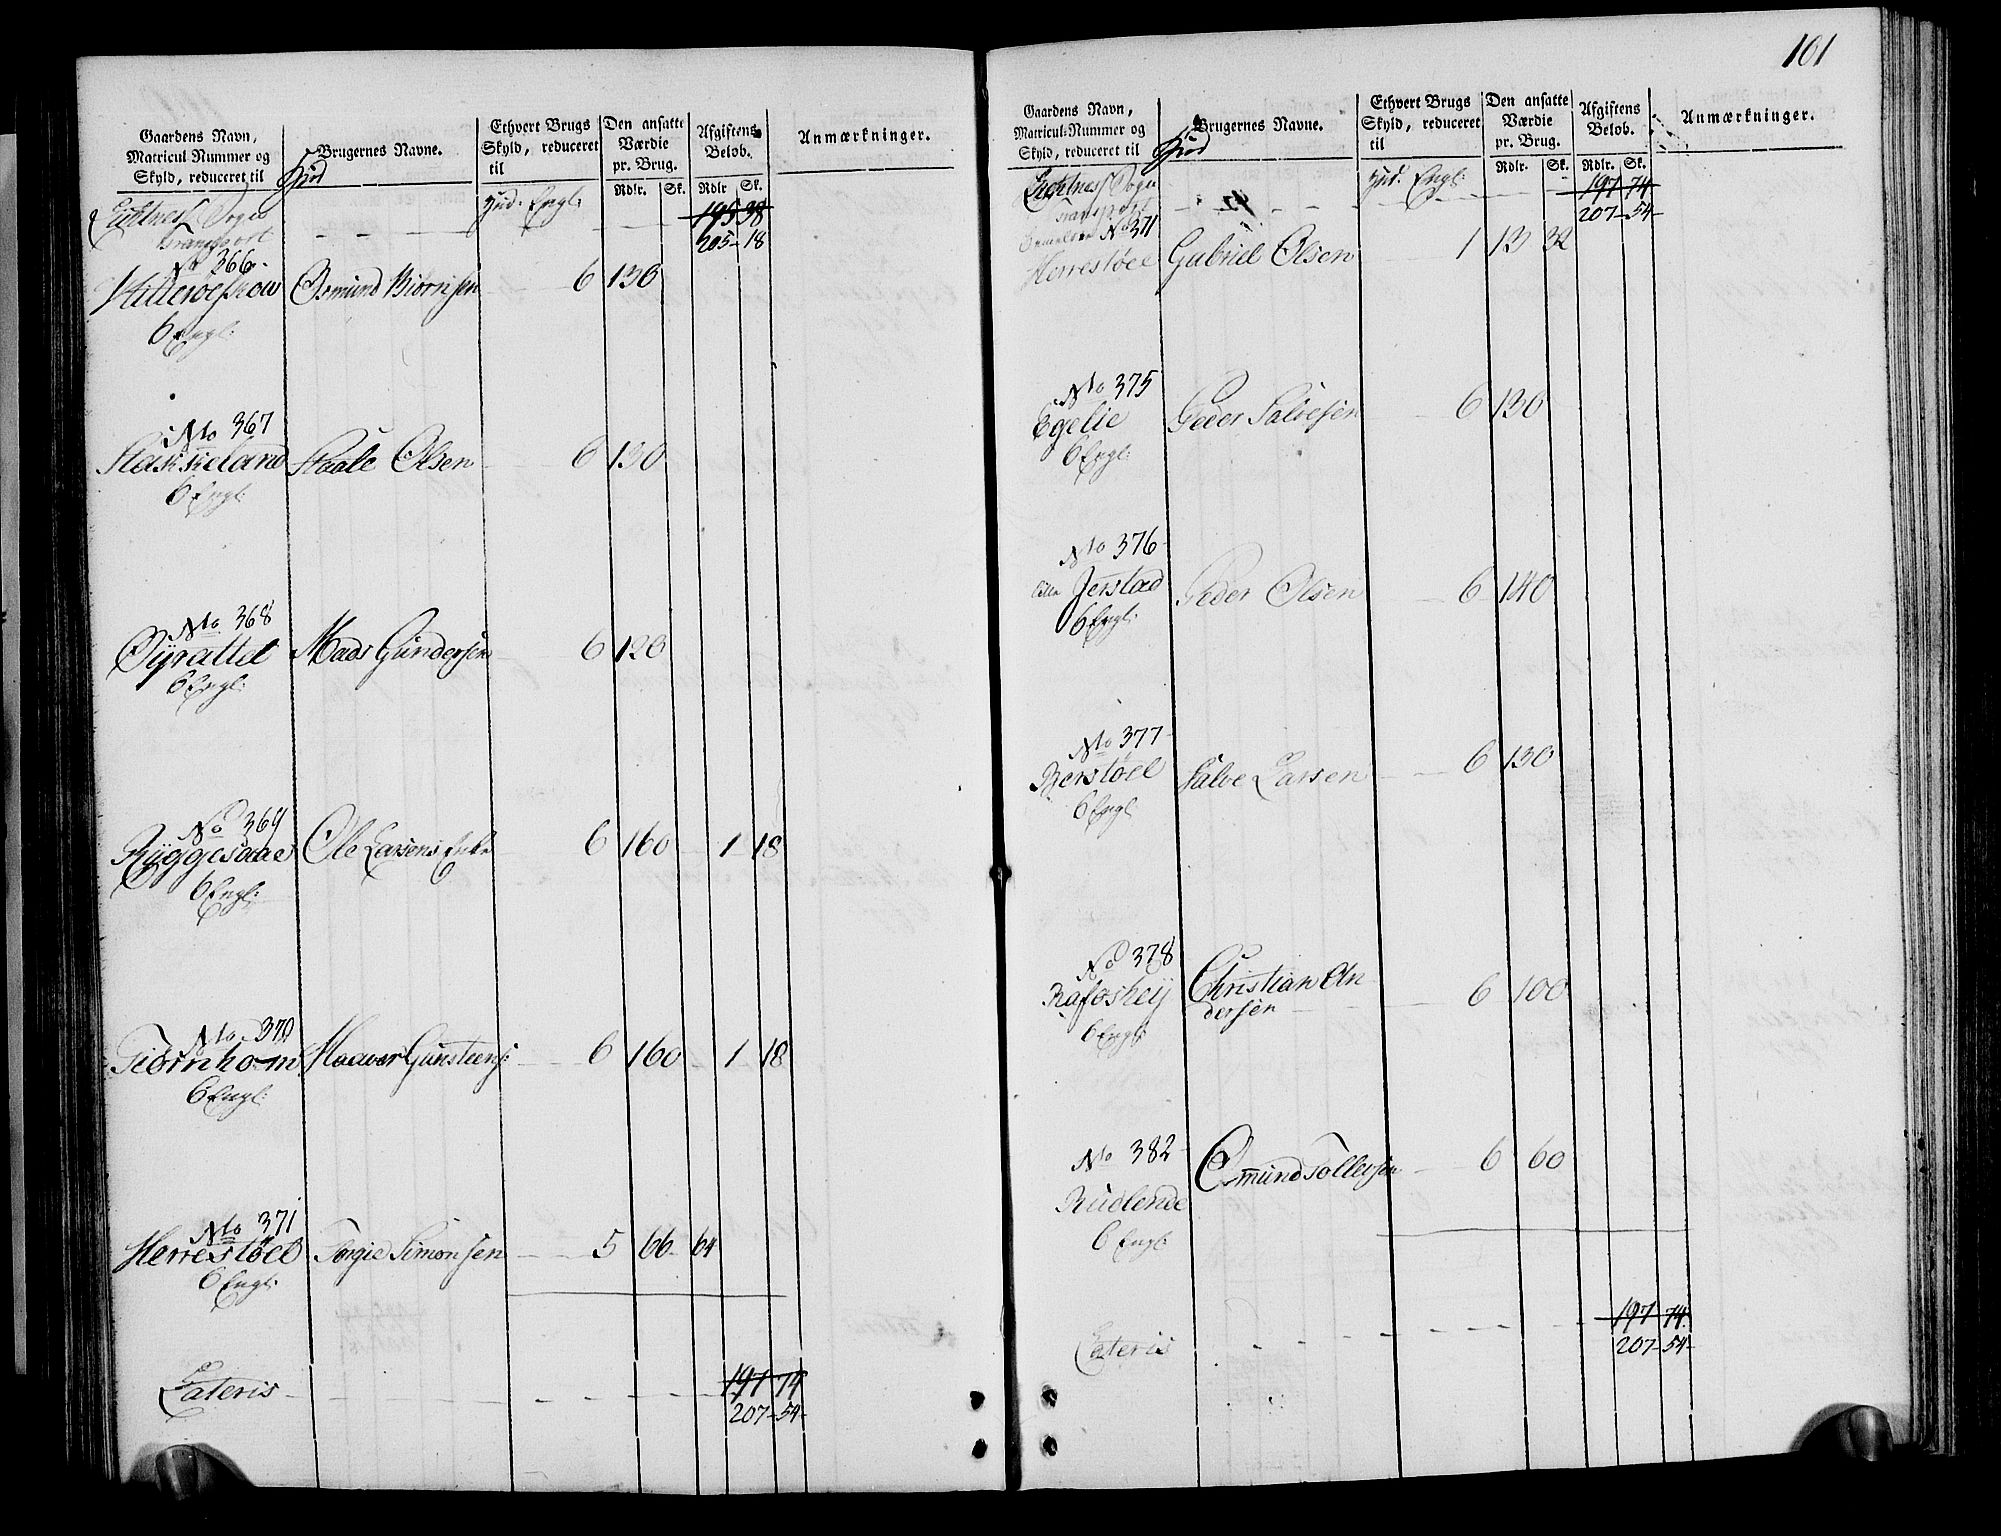 Gaardens Navn,
Matricul Nummer og
Skyld, reduceret til
Hud
Brugernes Navne.
Ethvert Brugs
Skyld, reduceret
til
Den ansatte
Værdie
pr. Brug.
Rdlr. Sk.
Afgiftens
Beløb.
Rdlr Sk.
Anmærkninger.
Sogn Hud. Engl: 195 38
Transport 205-18
No 366.
Osmund Biørnsen 6 130
6 Engl:
No 367
Stakkeland Staale Olsen 6 130
6 Engl:
No 368
Mads Gundersen 6 120
6 Engl:
No 369
Ryggesaae Ole Larsens Enke 6 160 1 18
6 Engl:
No 370
Tiørnhom Haavor Gunsteens: 6 160 1 18
6 Engl:
No 371
Herrestøel Torgie Simonsen 5 66 64
6 Engl:
Lateris 197 74
207-54-
101
Gaardens Navn,
Matricul-Nummer og
Skyld, reduceret til
Hud
Brugernes Navne.
Ethvert Brugs
Skyld, reduceret
til
Den ansatte
Værdie
pr. Brug.
Rdlr. Sk.
Afgiftens
Beløb.
Rdlr. Sk.
Anmærkninger.
Sogn Hud. Engl: 197 74
Transport 207-54-
No 371
Herrestøel Gabriel Olsen 1 13 32
No 375
Egelie Peder Salvesen 6 130
6 Engl:
No 376
Jerstad Peder Olsen 6 140
6 Engl:
No 377
Berstøel Salve Larsen 6 130
6 Engl
No 378
Rafoshey Christian An
dersen 6 100
6 Engl:
No 382
Osmund Tollevsen 6 60
Rudlende
6 Engl:
197 74.
Lateris 207-54-